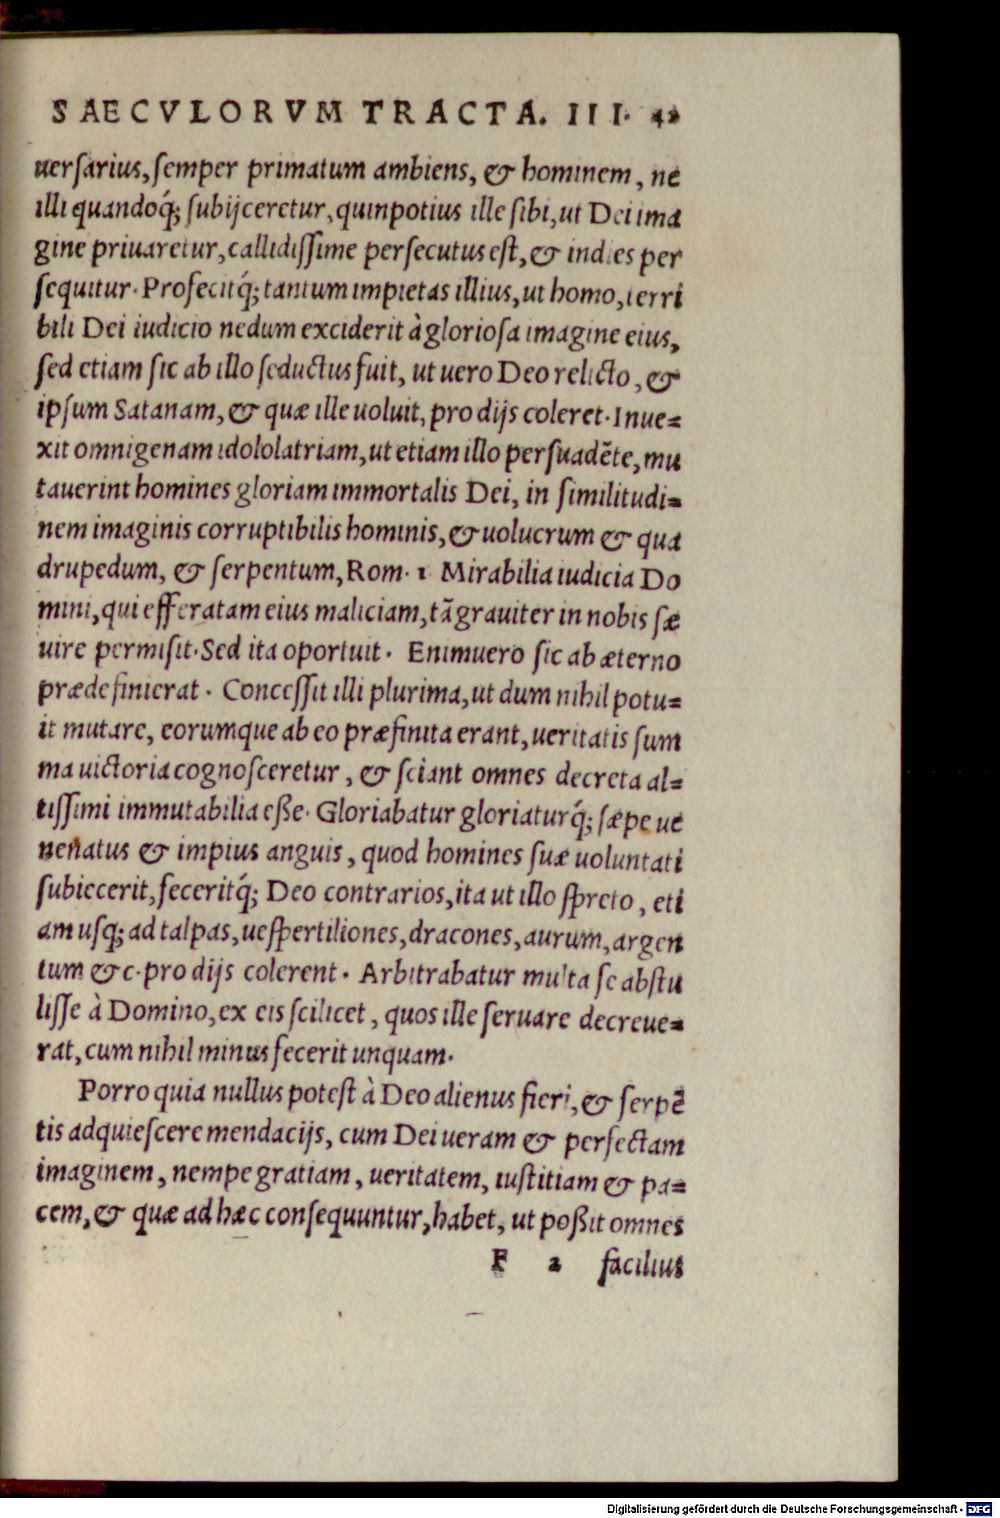 SAECVLORVM TRACTA. III. 42
uersarius, semper primatum ambiens, & hominem, ne
illi quandoq́; subijceretur, quinpotius ille sibi, ut Dei ima
gine priuaretur, callidissime persecutus est, & indies per
sequitur. Profecitq́; tantum impietas illius, ut homo, terri
bili Dei iudicio nedum exciderit à gloriosa imagine eius,
sed etiam sic ab illo seductus fuit, ut uero Deo relicto, &
ipsum Satanam, & quæ ille uoluit, pro dijs coleret. Inue=
xit omnigenam idololatriam, ut etiam illo persuadēte, mu
tauerint homines gloriam immortalis Dei, in similitudi=
nem imaginis corruptibilis hominis, & uolucrum & qua
drupedum, & serpentum, Rom. 1 Mirabilia iudicia Do
mini, qui efferatam eius maliciam, tā grauiter in nobis sæ
uire permisit. Sed ita oportuit. Enimuero sic ab æterno
prædefinierat. Concessit illi plurima, ut dum nihil potu=
it mutare, eorumque ab eo præfinita erant, ueritatis sum
ma uictoria cognosceretur, & sciant omnes decreta al=
tissimi immutabilia eße. Gloriabatur gloriaturq́; sæpe ue
nenatus & impius anguis, quod homines suæ uoluntati
subiecerit, feceritq́; Deo contrarios, ita ut illo spreto, eti
am usq; ad talpas, uespertiliones, dracones, aurum, argen
tum &c. pro dijs colerent. Arbitrabatur multa se abstu
lisse à Domino, ex eis scilicet, quos ille seruare decreue=
rat, cum nihil minus fecerit unquam.
Porro quia nullus potest à Deo alienus fieri, & serpē
tis adquiescere mendacijs, cum Dei ueram & perfectam
imaginem, nempe gratiam, ueritatem, iustitiam & pa=
cem, & quæ ad hæc consequuntur, habet, ut poßit omnes
F 2 facilius
Digitalisierung gefördert durch die Deutsche Forschungsgemeinschaft - DFG